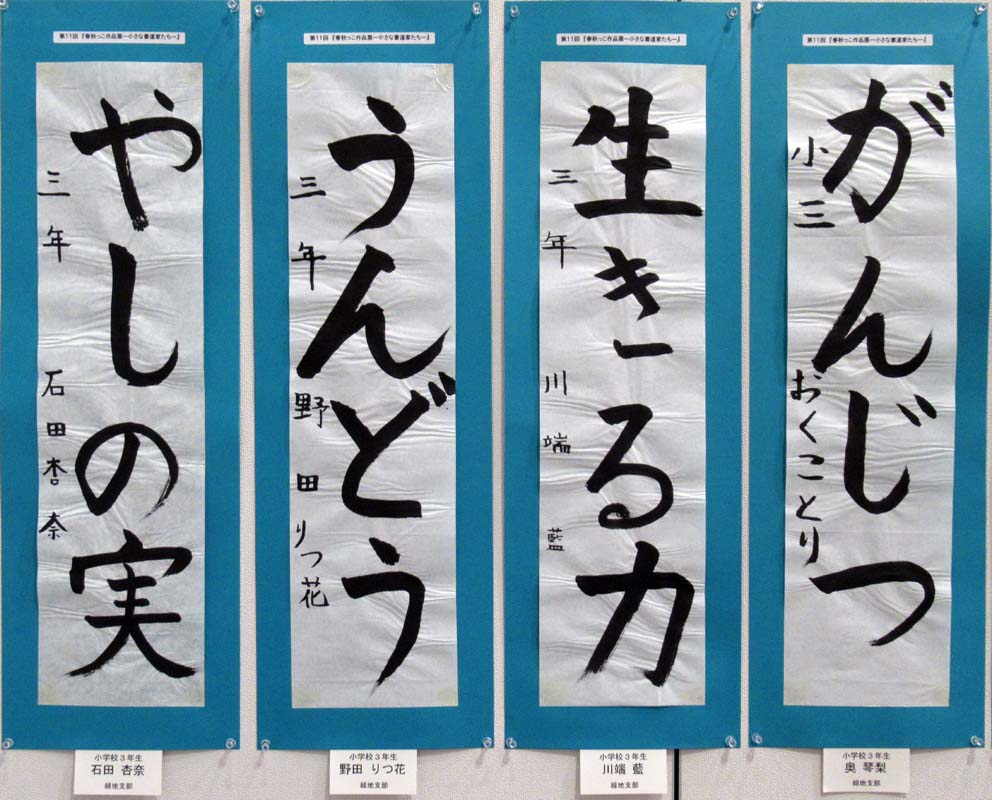 第11回 『春秋っこ作品展ー小さな書道家たちー』
やしの実
三年 石田杏奈
小学校3年生
石田 杏奈
緑地支部
第11回 『春秋っこ作品展ー小さな書道家たちー』
うんどう
三年 野田りつ花
小学校3年生
野田 りつ花
緑地支部
第11回 『春秋っこ作品展ー小さな書道家たちー』
生きる力
三年 川端藍
小学校3年生
川端 藍
緑地支部
第11回 『春秋っこ作品展ー小さな書道家たちー』
がんじつ
小三 おくことり
小学校3年生
奥 琴梨
緑地支部